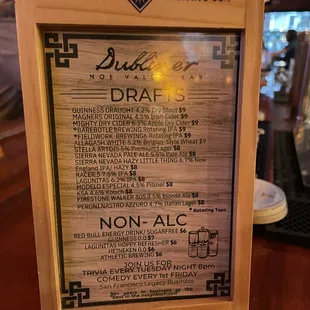 Dubliner
NOE VALLEY BAR
DRAFTS
GUINNESS DRAUGHT 4.2% Dry Stout $9
MAGNERS ORIGINAL 4.5% Irish Cider $9
MIGHTY DRY CIDER 6.3% Apple Dry Cider $9
*BAREBOTTLE BREWING Rotating IPA $9
*FIELDWORK BREWING Rotating IPA $9
ALLAGASH WHITE 5.2% Belgian-Style Wheat $9
STELLA ARTOIS 5% Premium Lager $8
SIERRA NEVADA PALE ALE 5.6% Pale Ale $8
SIERRA NEVADA HAZY LITTLE THING 6.7% New
England IPA/ HAZY $8
RACER 5 7.5% IPA $8
LAGUNITAS 6.2% IPA $8
MODELO ESPECIAL 4.5% Pilsner $8
KSA 4.6% Kolsch $8
FIRESTONE WALKER 805 4.5% Blonde Ale $8
PERONI NASTRO AZZURRO 4.7% Italian Lager $8
* Rotating Taps
NON- ALC
RED BULL ENERGY DRINK/ SUGARFREE $6
GUINNESS 0.0 $7
LAGUNITAS HOPPY REFRESHER $6
HEINEKEN 0.0 $6
ATHLETIC BREWING $6
JOIN US FOR
TRIVIA EVERY TUESDAY NIGHT 8pm
COMEDY EVERY 1st FRIDAY
San Francisco Legacy Business
30+ years in business as the
best in the neighborhood